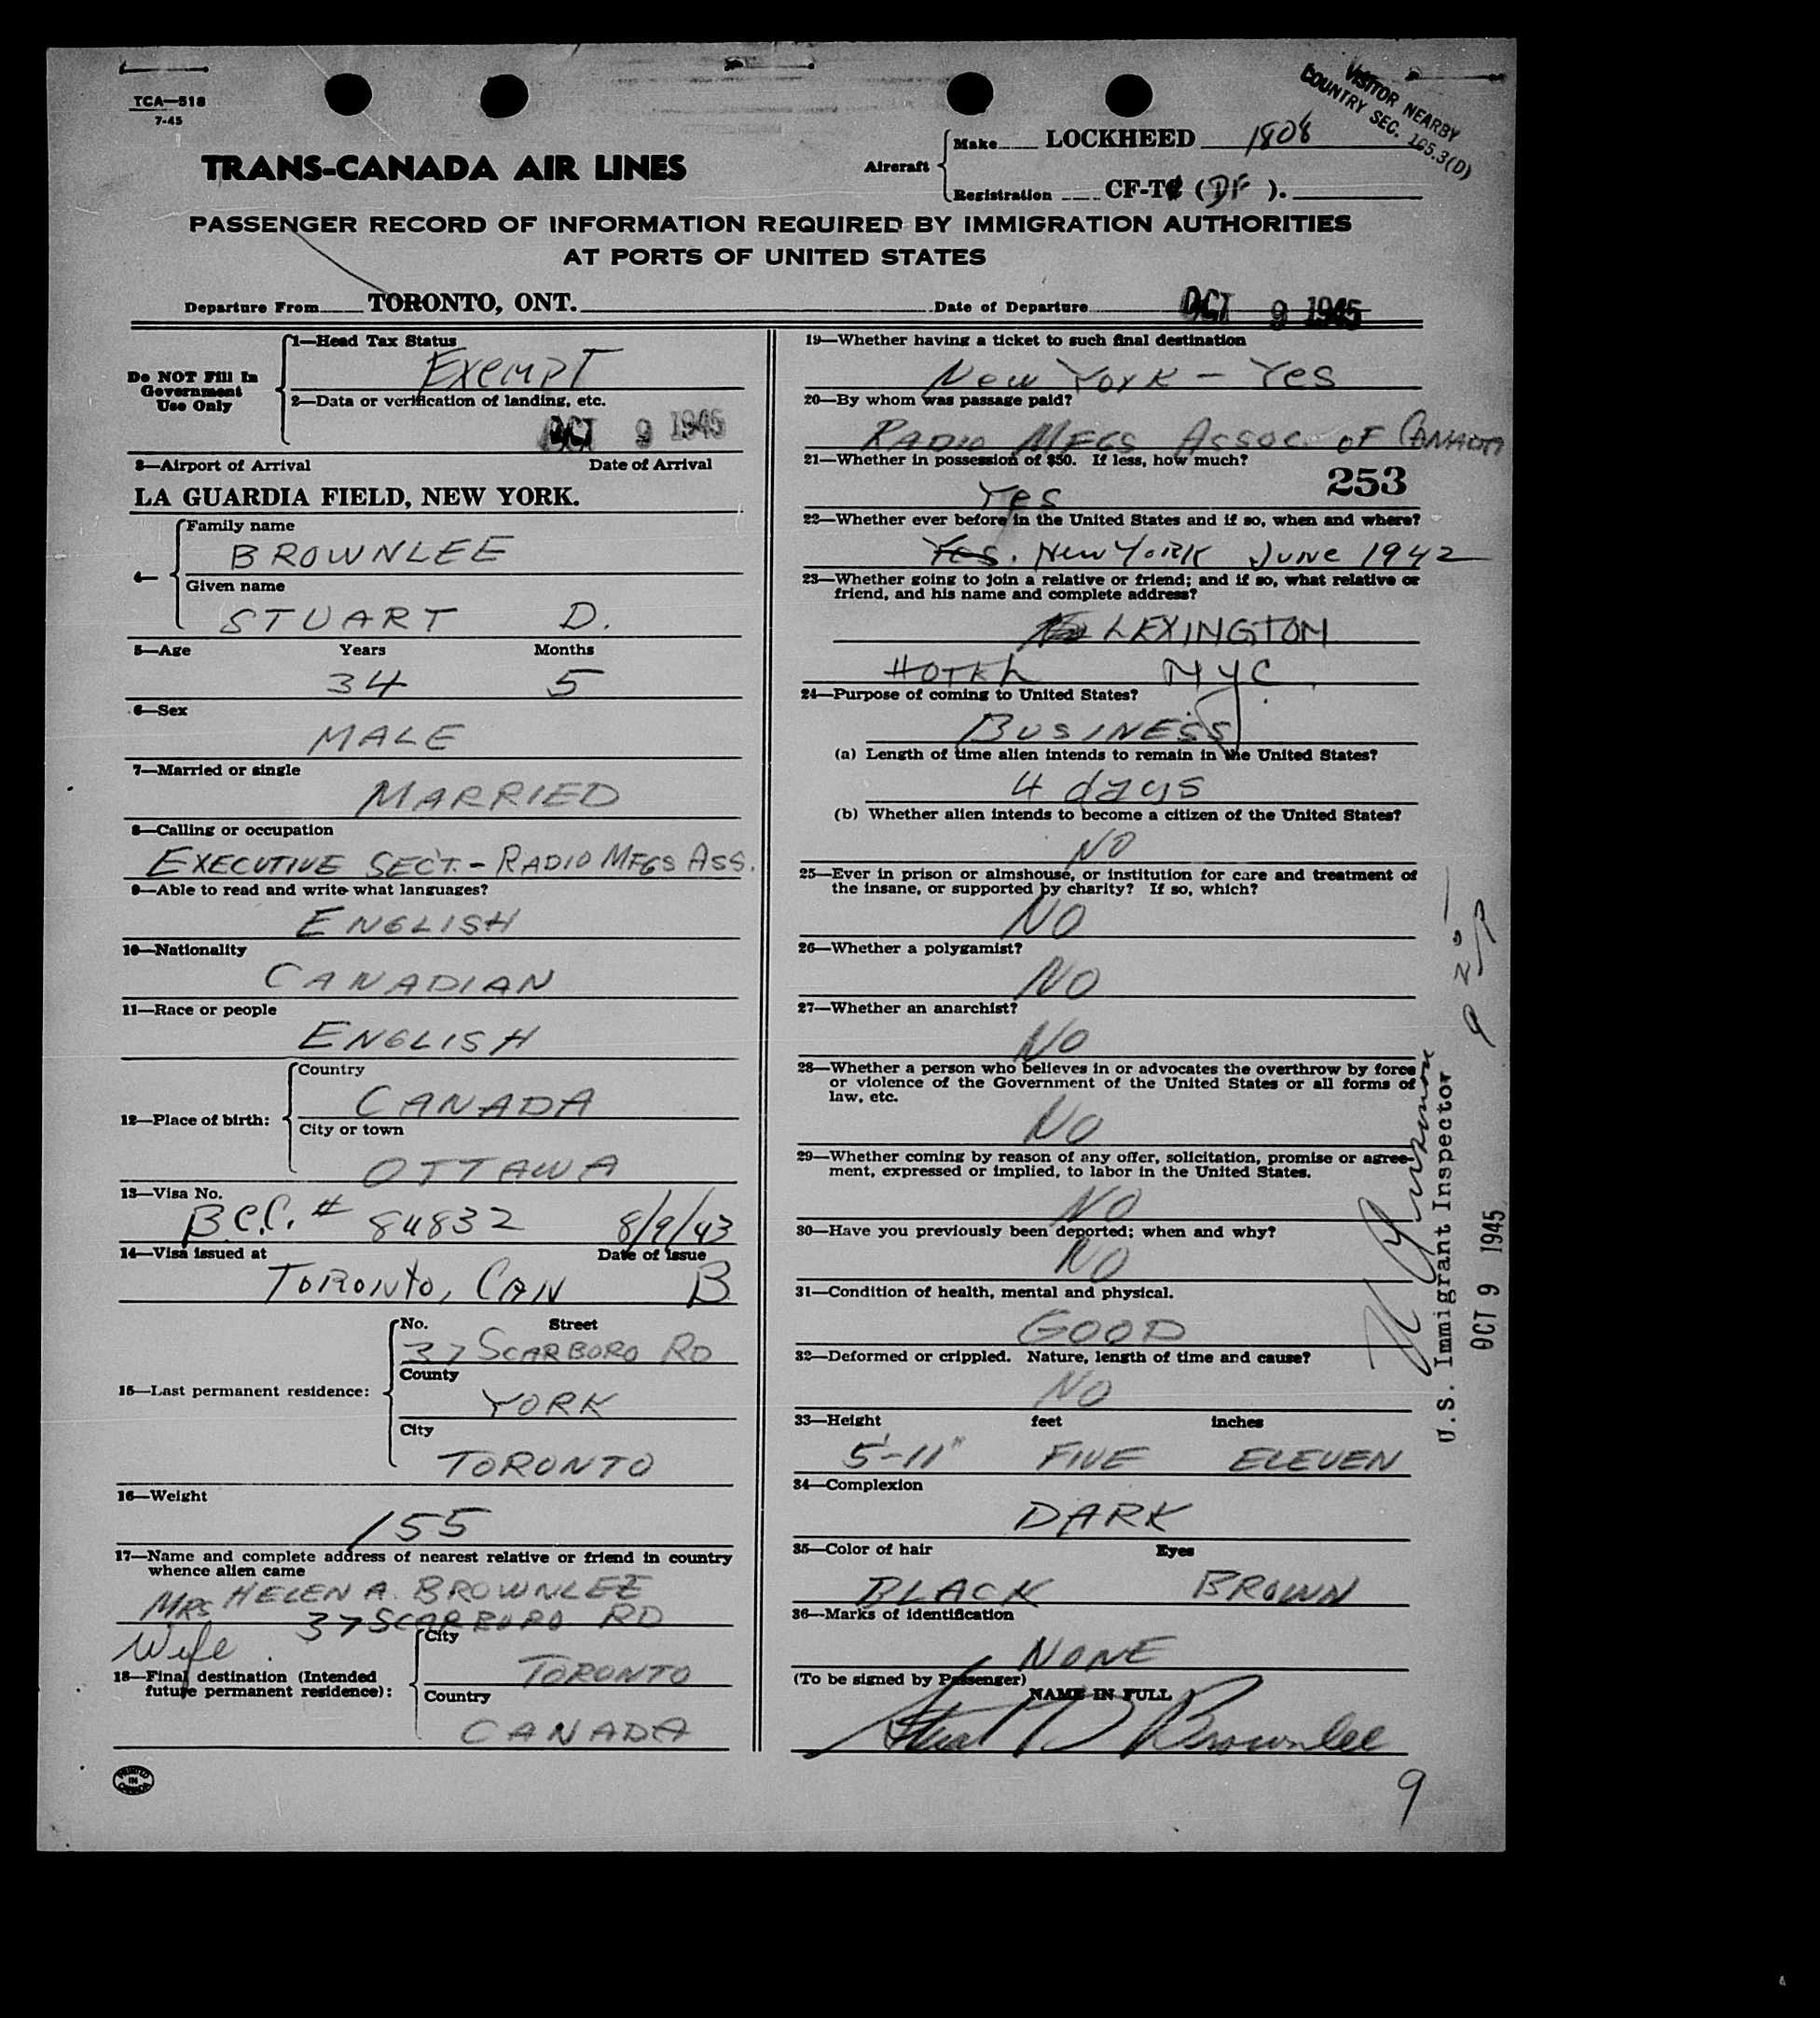 TCA—518
7-45
VISITOR NEARBY
COUNTRY SEC. 165.3(D)
TRANS-CANADA AIR LINES
Aircraft
Make LOCKHEED 1808
Registration CF-TC (DF).
PASSENGER RECORD OF INFORMATION REQUIRED BY IMMIGRATION AUTHORITIES
AT PORTS OF UNITED STATES
Departure From TORONTO, ONT. Date of Departure OCT 9 1945
Do NOT Fill In
Government
Use Only
1—Head Tax Status
Exempt
2—Data or verification of landing, etc.
OCT 9 1945
3—Airport of Arrival Date of Arrival
LA GUARDIA FIELD, NEW YORK.
4—
Family name
BROWNLEE
Given name
STUART D.
5—Age Years Months
34 5
6—Sex
MALE
7—Married or single
MARRIED
8—Calling or occupation
EXECUTIVE SEC'T. - RADIO MFGS ASS.
9—Able to read and write what languages?
ENGLISH
10—Nationality
CANADIAN
11—Race or people
ENGLISH
12—Place of birth:
Country
CANADA
City or town
OTTAWA
13—Visa No.
B.C.C. # 84832 8/9/43
14—Visa issued at Date of issue
TORONTO, CAN B
15—Last permanent residence:
No. Street
37 SCARBORO RD
County
YORK
City
TORONTO
16—Weight
155
17—Name and complete address of nearest relative or friend in country
whence alien came
MRS HELEN A. BROWNLEE
37 SCARBORO RD
Wife
18—Final destination (Intended
future permanent residence):
City
TORONTO
Country
CANADA
PRINTED
IN
CANADA
19—Whether having a ticket to such final destination
New York - Yes
20—By whom was passage paid?
RADIO MFGS ASSOC. OF CANADA
21—Whether in possession of $50. If less, how much?
253
Yes
22—Whether ever before in the United States and if so, when and where?
Yes. New York June 1942
23—Whether going to join a relative or friend; and if so, what relative or
friend, and his name and complete address?
LEXINGTON
HOTEL NYC.
24—Purpose of coming to United States?
BUSINESS
(a) Length of time alien intends to remain in the United States?
4 days
(b) Whether alien intends to become a citizen of the United States?
NO
25—Ever in prison or almshouse, or institution for care and treatment of
the insane, or supported by charity? If so, which?
NO
26—Whether a polygamist?
NO
27—Whether an anarchist?
NO
28—Whether a person who believes in or advocates the overthrow by force
or violence of the Government of the United States or all forms of
law, etc.
NO
29—Whether coming by reason of any offer, solicitation, promise or agree-
ment, expressed or implied, to labor in the United States.
NO
30—Have you previously been deported; when and why?
NO
31—Condition of health, mental and physical.
GOOD
32—Deformed or crippled. Nature, length of time and cause?
NO
33—Height feet inches
5'-11" FIVE ELEVEN
34—Complexion
DARK
35—Color of hair Eyes
BLACK BROWN
36—Marks of identification
NONE
(To be signed by Passenger)
NAME IN FULL
Stuart D Brownlee
9
U.S. Immigrant Inspector
OCT 9 1945